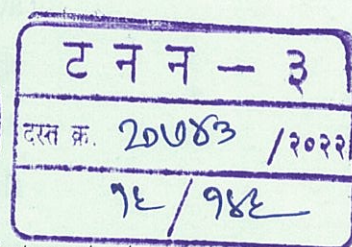 ट न न – ३
दस्त क्र. २०७४३ /२०२२
१६/१४६